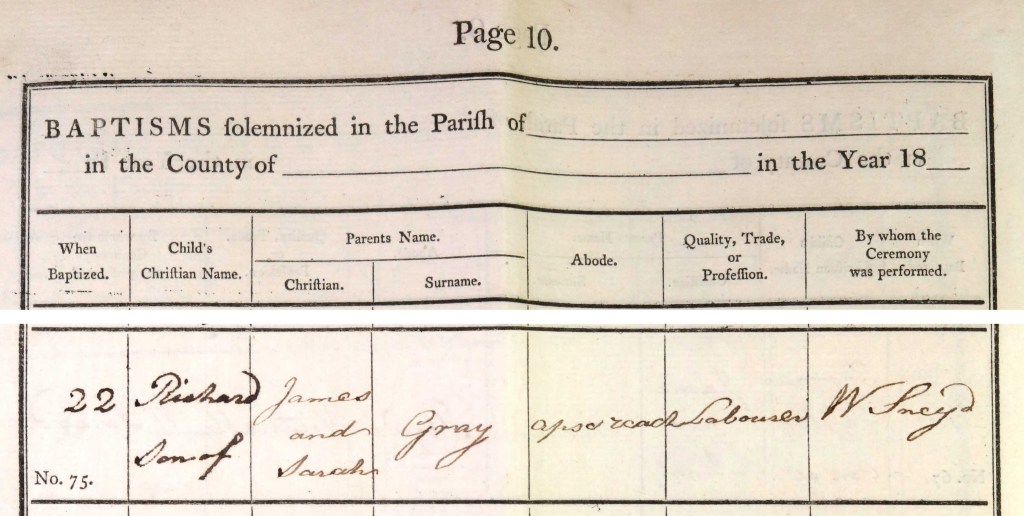 Page 10.
BAPTISMS ſolemnized in the Pariſh of
in the County of in the Year 18
When
Baptized.
Child's
Chriſtian Name.
Parents Name.
Chriſtian.
Surname.
Abode.
Quality, Trade,
or
Profeſſion.
By whom the
Ceremony
was performed.
22
No. 75.
Richard
Son of
James
and
Sarah
Gray
Labourer
W Sneyd